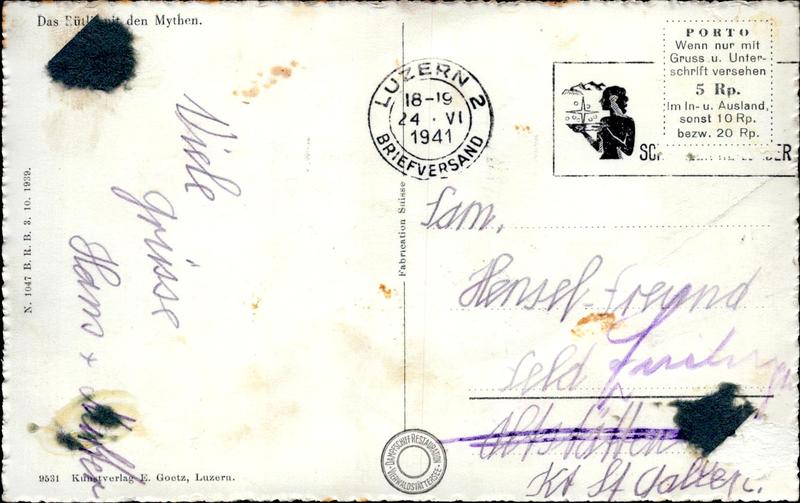 Das Rütli mit den Mythen.
PORTO
Wenn nur mit
Gruss u. Unter-
schrift versehen
5 Rp.
Im In- u. Ausland,
sonst 10 Rp.
bezw. 20 Rp.
LUZERN 2
18-19
24. VI
1941
BRIEFVERSAND
Viele
Grüsse
Hans +
N. 1047 B. R. B. 3. 10. 1939.
Fabrication Suisse
Fam.
Hensel-Freund
Feld
Altstätten
Kt St Gallen.
DAMPFSCHIFF RESTAURATION
VIERWALDSTÄTTERSEE
9531 Kunstverlag E. Goetz, Luzern.